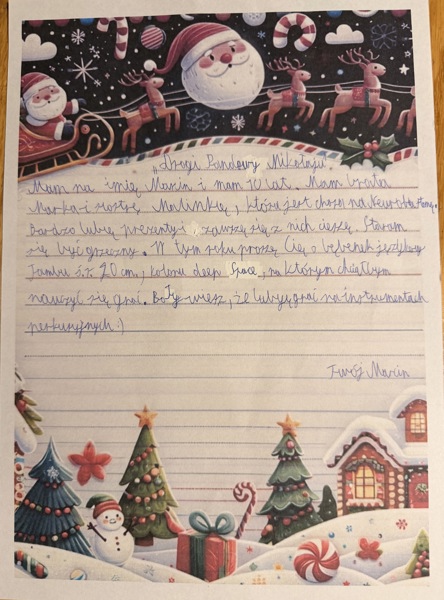 „Drogi Pandowy Mikołaju
Mam na imię Marcin i mam 10 lat. Mam brata
Marka i siostrę Malinkię, która jest chora na
Bardzo lubię prezenty i zawszę się z nich cieszę. Staram
się być grzeczny. W tym roku proszę Cię o bębenek językowy
Tambu i.r. 20 cm, koloru deep Space, na którym chciałbym
nauczyć się grać. Bo Ty wiesz, że lubię grać na instrumentach
perkusyjnych :)
Twój Marcin